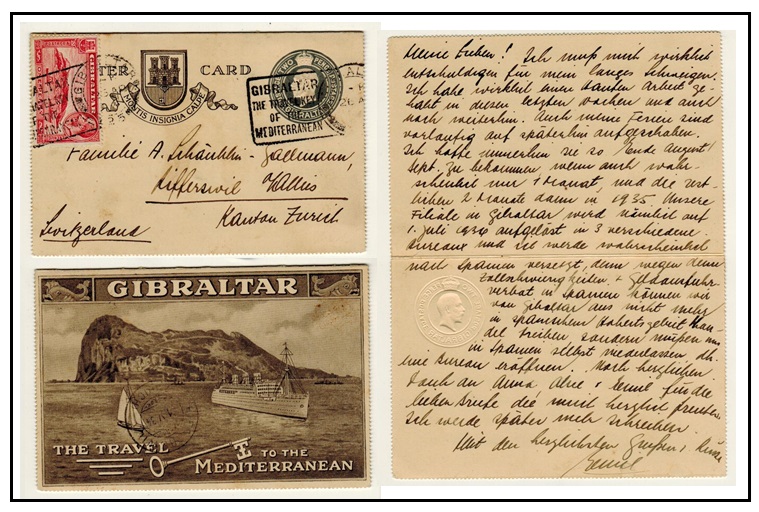 LETTER CARD
MONTIS INSIGNIA CALPE
GIBRALTAR
THE TRAVEL KEY
OF
MEDITERRANEAN
Familie A. Schäublin-
Zallmann,
Kanton Zürich
Switzerland
GIBRALTAR
THE TRAVEL
TO THE
MEDITERRANEAN
Meine Lieben! Ich muß mich wirklich
entschuldigen für mein langes Schweigen.
Ich habe wirklich einen Arbeit ge-
habt in diesen letzten Wochen und auch
noch weiterhin. Auch meine Ferien sind
vorläufig auf späterhin aufgeschoben.
Ich hoffe immerhin sie so Ende August/
Sept. zu bekommen, wenn auch wahr-
scheinlich nur 1 Monat, und die rest-
lichen 2 Monate dann in 1935. Unsere
Filiale in Gibraltar wird nämlich auf
1. Juli 1934 aufgelöst in 3 verschiedene
Bureaux und ich werde wahrscheinlich
nach Spanien versetzt, denn wegen den
Zollschwierigkeiten + Geldausfuhr-
verbot in Spanien können wir
von Gibraltar aus nicht mehr
in spanischem Hoheitsgebiet Han-
del treiben sondern müßen uns
in Spanien selbst niederlassen, dh.
eine Bureau eröffnen. Noch herzlichen
Dank an Anna, Alice + Emil für die
lieben Briefe die mich herzlich freuten.
Ich werde später mehr schreiben.
Mit den herzlichsten Grüßen
Emil